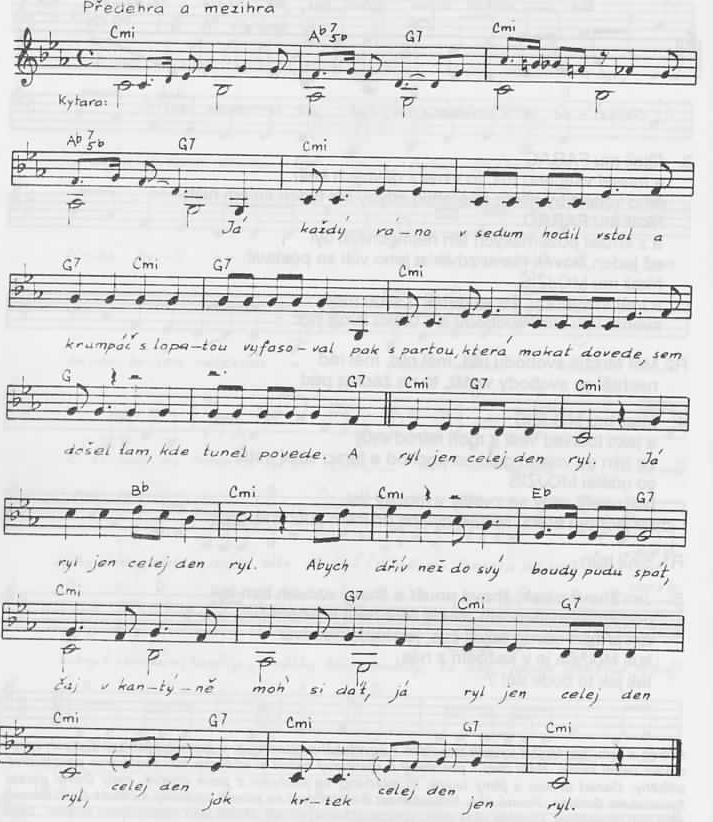 Předehra a mezihra
Cmi Ab 7 5b G7 Cmi
Kytara:
Ab 7 5b G7 Cmi
Já každý rá-no v sedum hodil vstal a
G7 Cmi G7 Cmi
krumpáč s lopa-tou vyfaso-val pak s partou, která makat dovede, sem
G G7 Cmi G7 Cmi
došel tam, kde tunel povede. A ryl jen celej den ryl. Já
Bb Cmi Cmi Eb G7
ryl jen celej den ryl. Abych dřív než do svý boudy pudu spát,
Cmi G7 Cmi G7
čaj v kan-tý-ně moh' si dát, já ryl jen celej den
Cmi G7 Cmi G7 Cmi
ryl, celej den jak kr-tek celej den jen ryl.